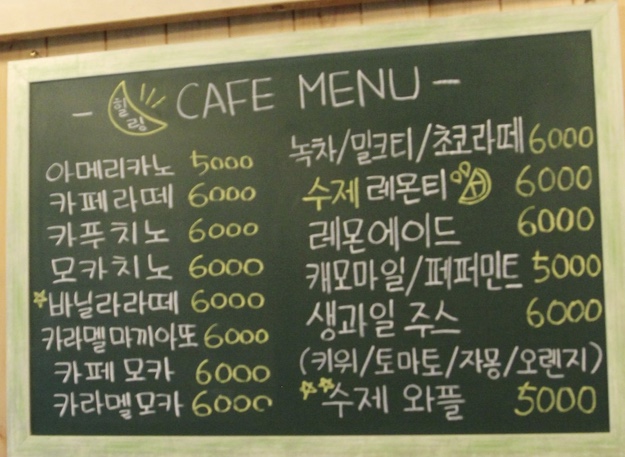 - 힐링 CAFE MENU -
아메리카노 5000
카페라떼 6000
카푸치노 6000
모카치노 6000
바닐라라떼 6000
카라멜마끼아또 6000
카페모카 6000
카라멜모카 6000
녹차/밀크티/초코라떼 6000
수제 레몬티 6000
레몬에이드 6000
캐모마일/페퍼민트 5000
생과일 주스 6000
(키위/토마토/자몽/오렌지)
수제 와플 5000